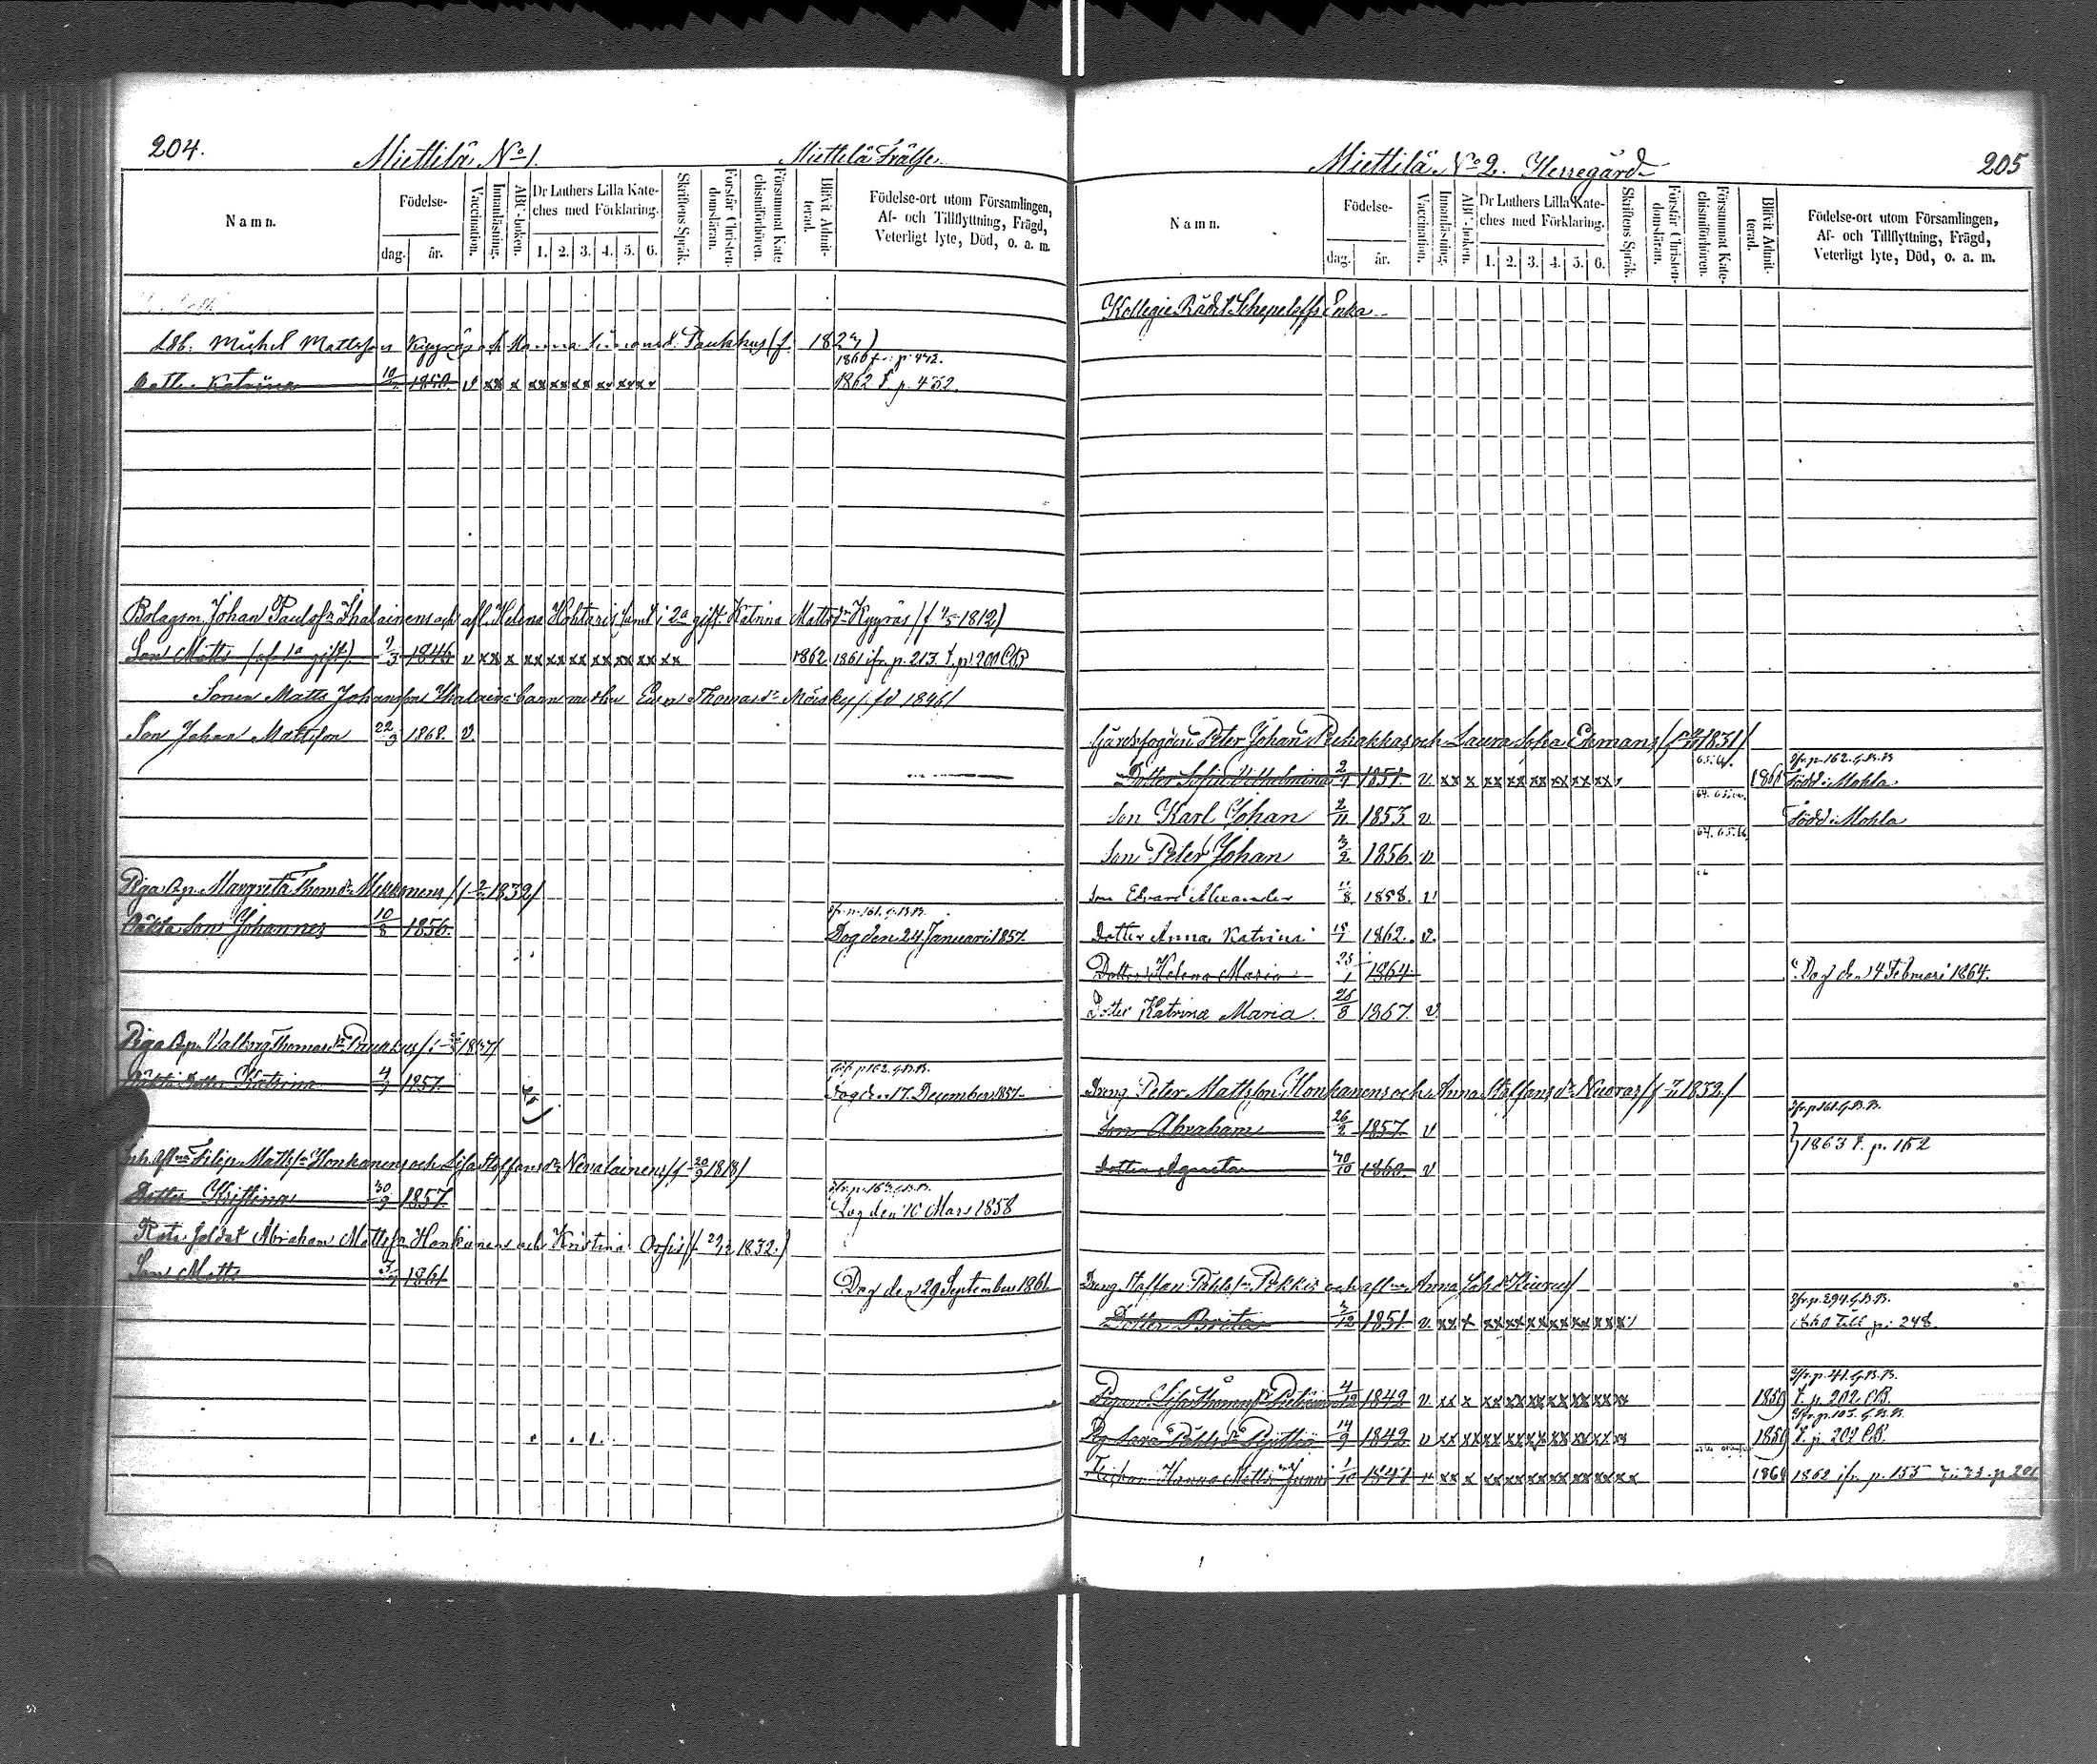 204.
Miettilä No 1.
Miettilä Frälse.
Namn.
Födelse-
dag.
år.
Vaccination.
Innanläsning.
ABC-boken.
Dr Luthers Lilla Kate-
ches med Förklaring.
1. 2. 3. 4. 5. 6.
Skriftens Språk.
Förstår Christen-
domsläran.
Försummat Kate-
chismiförhören.
Blifvit Admit-
terad.
Födelse-ort utom Församlingen,
Af- och Tillflyttning, Frägd,
Veterligt lyte, Död, o. a. m.
Michel Mattsson Kyyrö och Hanna Simons dr Paukkus (f. 1827)
1866 fr. p. 442.
Dotter Katrina 1850. v xx x xx xx xx xx xx xx 1862 t. p. 432.
Bolagsm. Johan Paulsson Ihalainens och afl. Helena Hohtaris samt i 2a gift Katrina Mattsdr Kyyräs (f 1/5 1812)
Son Matts (af 1a gift) 9/3 1846 v xx x xx xx xx xx xx xx xx 1862 1861 ifr. p. 213. t. p. 200 CB
Sonen Matts Johansson Ihalains barn med hu Eva Thomasdr Mörsky (född 1846)
Son Johan Mattsson 22/3 1868. v.
Piga Margreta Thomdr Mikkonens (f 1832)
Oäkta Son Johannes 10/8 1856.
Ifr. p. 161. G.B.B.
Dog den 24 Januari 1857.
Piga Valborg Thomasdr Paukkus
Oäkta Dotter Katrina 4/9 1857.
Ifr. p. 162. G.B.B.
Dog den 17 December 1857.
Inh. Filip Mattsson Honkanens och Lisa Staffansdr Nevalainens (f 20/9 1818)
Dotter Kristina 30/9 1857
Ifr. p. 163. G.B.B.
Dog den 10 Mars 1858
Rote soldat Abraham Mattsson Honkanens och Kristina Orpis (f. 29/12 1832.)
Son Matts 1861
Dog den 29 September 1861
205
Miettilä No 2. Herregård
Namn.
Födelse-
dag.
år.
Vaccination.
Innanläsning.
ABC-boken.
Dr Luthers Lilla Kate-
ches med Förklaring.
1. 2. 3. 4. 5. 6.
Skriftens Språk.
Förstår Christen-
domsläran.
Försummat Kate-
chismiförhören.
Blifvit Admit-
terad.
Födelse-ort utom Församlingen,
Af- och Tillflyttning, Frägd,
Veterligt lyte, Död, o. a. m.
Kollegie Rådet Schepeleffs Enka
Gårdsfogden Peter Johan Puhakkas och Laura Sofia Ekmans (f 1831)
Ifr. p. 162. G.B.B.
Dotter Sofia Vilhelmina 2/9 1851. v xx x xx xx xx xx xx xx Född i Mohla
Son Karl Johan 2/11 1853. v. Född i Mohla
Son Peter Johan 3/2 1856. v
Son Edvard Alexander 11/8 1858. v
Dotter Anna Katrina 1862. v.
Dotter Helena Maria 25/1 1864. Dog den 4 Februari 1864.
Dotter Katrina Maria. 25/8 1867. v
Dreng Peter Mattsson Honkanens och Anna Staffansdr
Ifr. p. 161. G.B.B.
Son Abraham 26/2 1857 v
1863 t. p. 152
Dotter Agneta 30/10 1860. v
Dreng Staffan Påhlsson Pekkis och
Ifr. p. 294. G.B.B.
Dotter Brita 1851. v xx x xx xx xx xx xx xx 1860 till p. 248.
Ifr. p. 41. G.B.B.
Pigan Lisa Thomasdr 4/12 1842 v xx x xx xx xx xx xx xx xx 1859 t. p. 202 CB.
Ifr. p. 103. G.B.B.
Pig. Sara Påhlsdr 14/9 1842. v xx xx xx xx xx xx xx xx xx 1859 t. p. 202 CB.
Flickan Hanna Mattsdr Junni 1/10 1847 v xx x xx xx xx xx xx xx xx 1862 ifr. p. 155